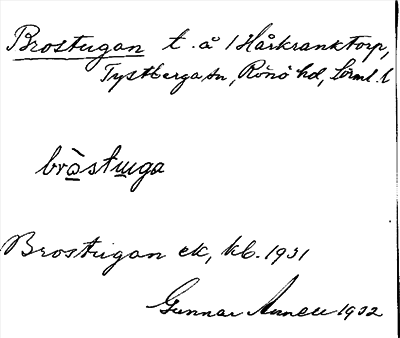 Brostugan t. å /Hårkranktorp,
Tystberga sn, Rönö hd, Sörml. l
bròstɯga
Brostugan ek, kb. 1931
Gunnar 1932